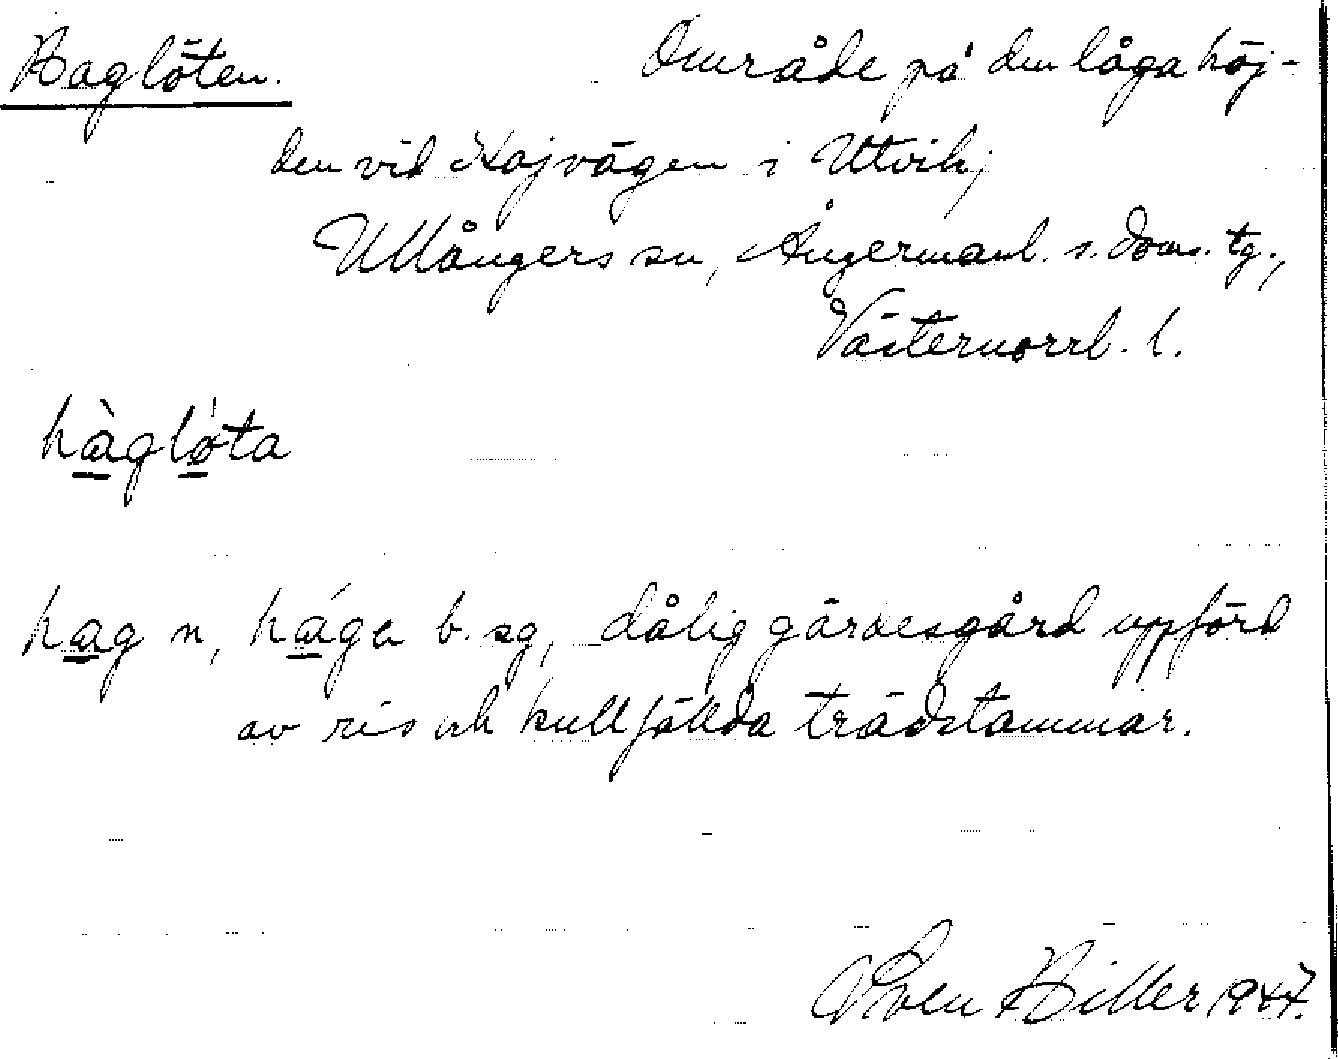 Haglöten. Område på den låga höj-
den vid Kajvägen i Utvik,
Ullångers sn, Ångermanl. s. doms. tg.,
Västernorrl. l.
hàglò̍ta
hag n, hága b. sg, dålig gärdesgård uppförd
av ris och kullfällda trädstammar.
Sven Hiller 1947.